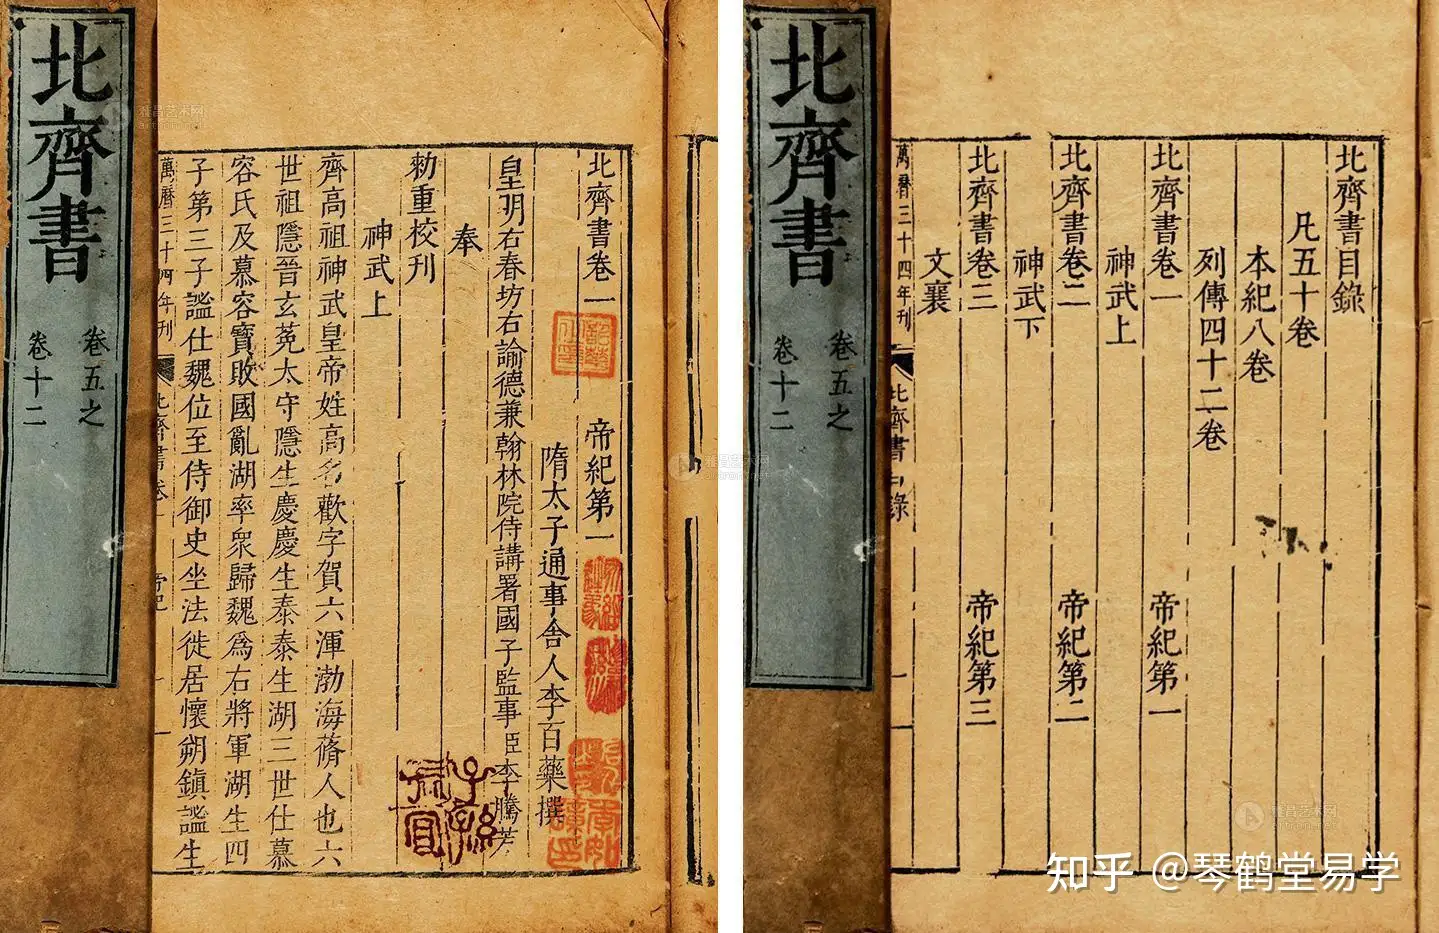 北齊書
卷五之
卷十二
北齊書卷一 帝紀第一
隋太子通事舍人李百藥撰
皇明右春坊右諭德兼翰林院侍講署國子監事臣李騰芳
奉
勑重校刊
神武上
齊高祖神武皇帝姓高名歡字賀六渾渤海蓨人也六
世祖隱晉玄菟太守隱生慶慶生泰泰生湖三世仕慕
容氏及慕容寶敗國亂湖率衆歸魏爲右將軍湖生四
子第三子謐仕魏位至侍御史坐法徙居懷朔鎮謐生
萬曆三十四年刊
北齊書卷一
帝紀
一
子孫
雅昌艺术网
北齊書
卷五之
卷十二
北齊書目錄
凡五十卷
本紀八卷
列傳四十二卷
北齊書卷一 帝紀第一
神武上
北齊書卷二 帝紀第二
神武下
北齊書卷三 帝紀第三
文襄
萬曆三十四年刊
北齊書目錄
一
雅昌艺术网
知乎 @琴鹤堂易学